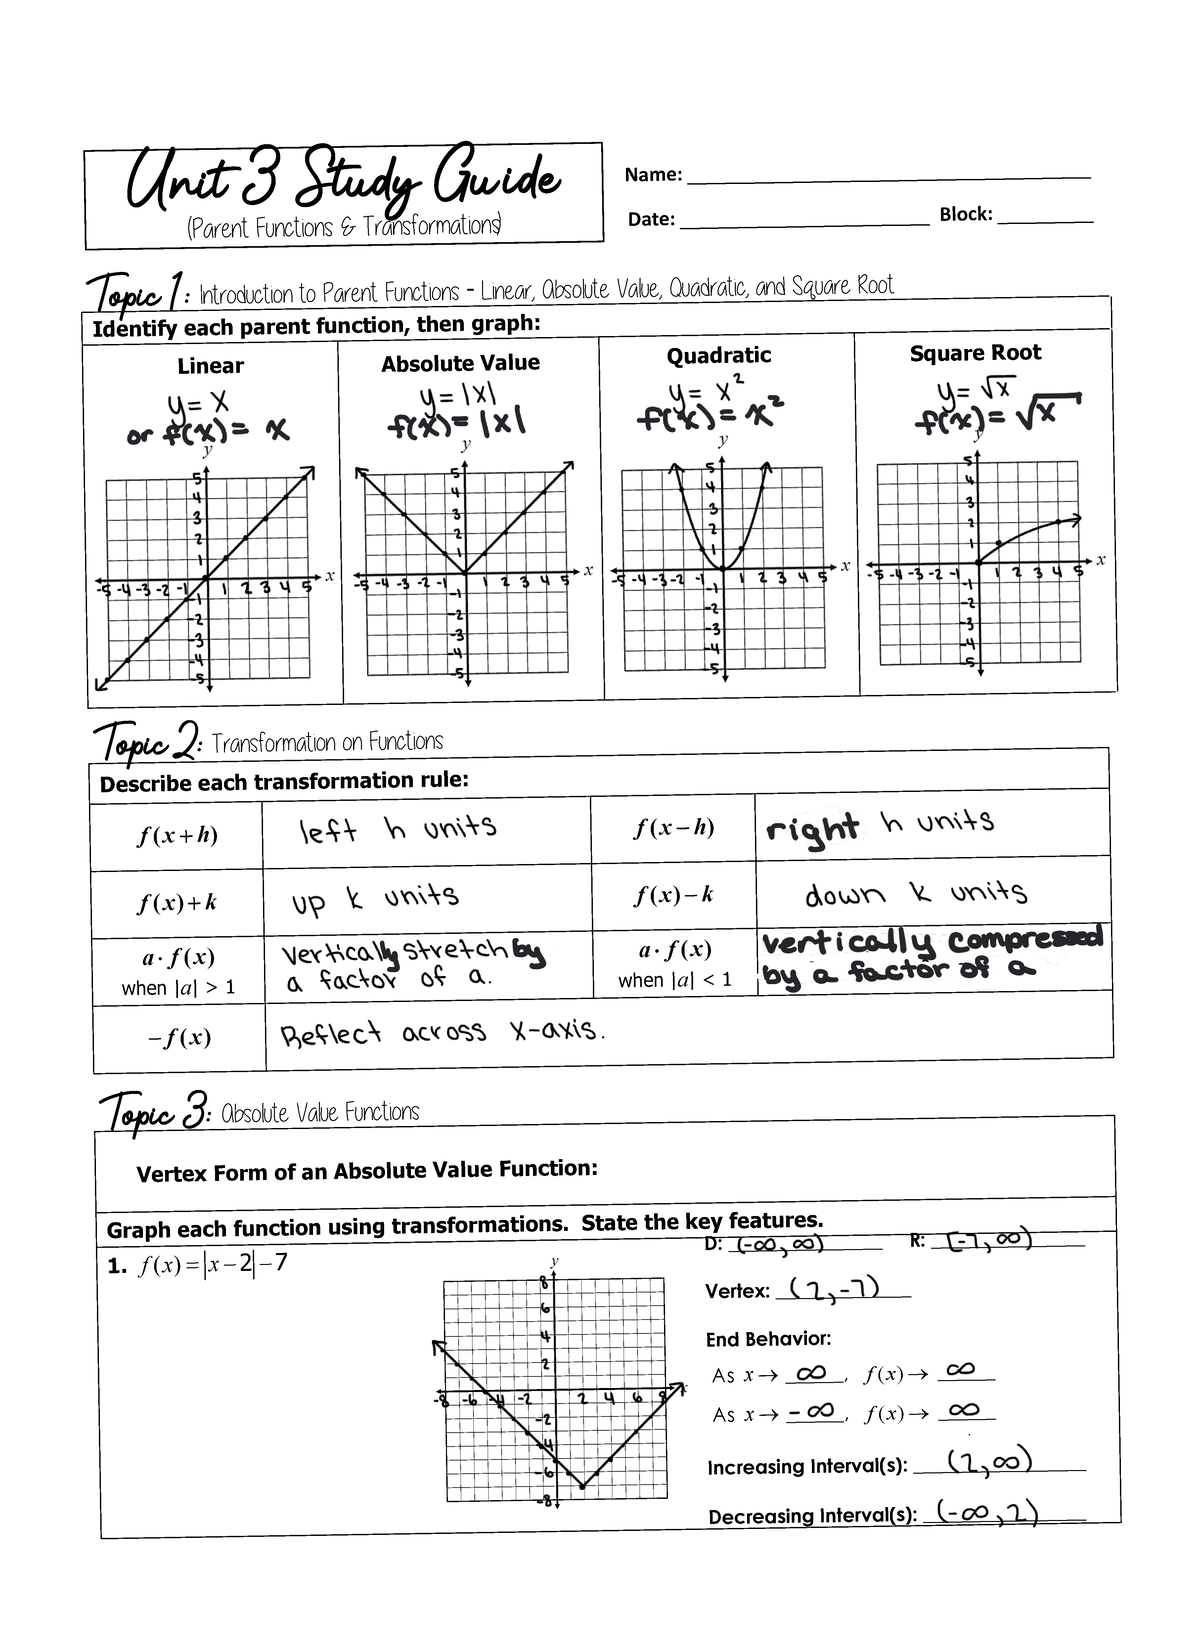 Unit 3 Study Guide
(Parent Functions & Transformations)
Name:
Date: Block:
Topic 1: Introduction to Parent Functions - Linear, Absolute Value, Quadratic, and Square Root
Identify each parent function, then graph:
Linear
y = x
or f(x) = x
y
5
4
3
2
1
-5 -4 -3 -2 -1 1 2 3 4 5 x
-1
-2
-3
-4
-5
Absolute Value
y = |x|
f(x) = |x|
y
5
4
3
2
1
-5 -4 -3 -2 -1 1 2 3 4 5 x
-1
-2
-3
-4
-5
Quadratic
y = x²
f(x) = x²
y
5
4
3
2
1
-5 -4 -3 -2 -1 1 2 3 4 5 x
-1
-2
-3
-4
-5
Square Root
y = √x
f(x) = √x
y
5
4
3
2
1
-5 -4 -3 -2 -1 1 2 3 4 5 x
-1
-2
-3
-4
-5
Topic 2: Transformation on Functions
Describe each transformation rule:
f(x + h) left h units f(x − h) right h units
f(x) + k up k units f(x) − k down k units
a · f(x) when |a| > 1
vertically stretch by
a factor of a.
a · f(x) when |a| < 1
vertically compressed
by a factor of a
−f(x) Reflect across x-axis.
Topic 3: Absolute Value Functions
Vertex Form of an Absolute Value Function:
Graph each function using transformations. State the key features.
1. f(x) = |x − 2| − 7
y
8
6
4
2
-8 -6 -4 -2 2 4 6 8 x
-2
-4
-6
-8
D: (-∞, ∞) R: [-7, ∞)
Vertex: (2, -7)
End Behavior:
As x → ∞, f(x) → ∞
As x → -∞, f(x) → ∞
Increasing Interval(s): (2, ∞)
Decreasing Interval(s): (-∞, 2)